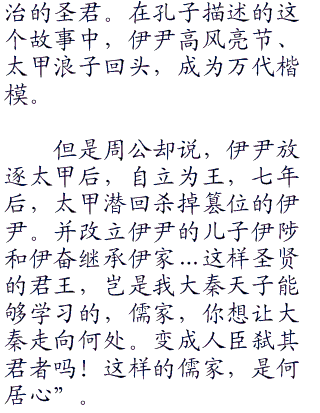 治的圣君。在孔子描述的这
个故事中，伊尹高风亮节、
太甲浪子回头，成为万代楷
模。
但是周公却说，伊尹放
逐太甲后，自立为王，七年
后，太甲潜回杀掉篡位的伊
尹。并改立伊尹的儿子伊陟
和伊奋继承伊家…这样圣贤
的君王，岂是我大秦天子能
够学习的，儒家，你想让大
秦走向何处。变成人臣弑其
君者吗！这样的儒家，是何
居心”。